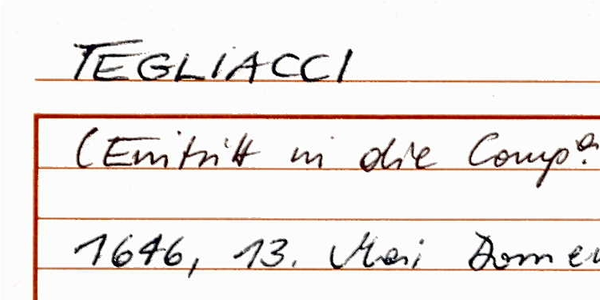 TEGLIACCI
(Eintritt in die Comp.a
1646, 13. Mai Domen